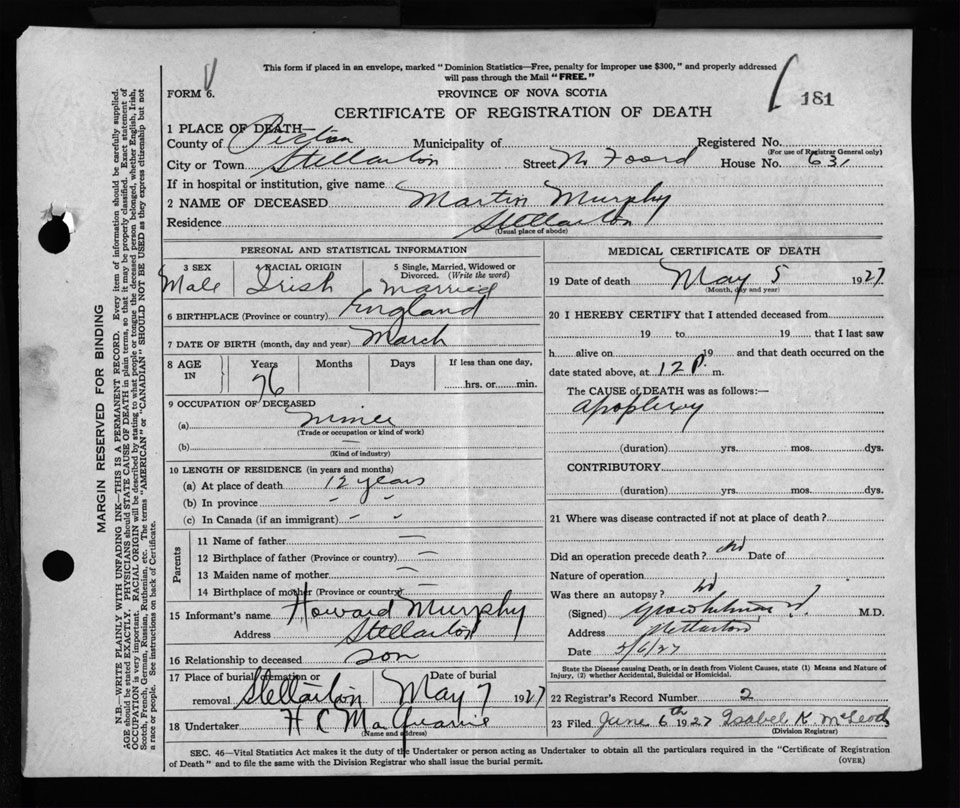 This form if placed in an envelope, marked "Dominion Statistics—Free, penalty for improper use $300," and properly addressed
will pass through the Mail "FREE."
181
FORM 6.
PROVINCE OF NOVA SCOTIA
CERTIFICATE OF REGISTRATION OF DEATH
1 PLACE OF DEATH—
County of Pictou Municipality of Registered No.
(For use of Registrar General only)
City or Town Stellarton Street N. Foord House No. 631
If in hospital or institution, give name
2 NAME OF DECEASED Martin Murphy
Residence Stellarton
(Usual place of abode)
PERSONAL AND STATISTICAL INFORMATION
3 SEX 4 RACIAL ORIGIN 5 Single, Married, Widowed or Divorced. (Write the word)
Male Irish Married
6 BIRTHPLACE (Province or country) England
7 DATE OF BIRTH (month, day and year) March
8 AGE IN Years Months Days If less than one day,
76 hrs. or min.
9 OCCUPATION OF DECEASED
(a) Miner
(Trade or occupation or kind of work)
(b) —
(Kind of industry)
10 LENGTH OF RESIDENCE (in years and months)
(a) At place of death 12 years
(b) In province " "
(c) In Canada (if an immigrant) " "
Parents
11 Name of father —
12 Birthplace of father (Province or country) —
13 Maiden name of mother —
14 Birthplace of mother (Province or country) —
15 Informant's name Howard Murphy
Address Stellarton
16 Relationship to deceased son
17 Place of burial, cremation or
removal Stellarton May 7 1927
18 Undertaker H C
(Name and address)
MEDICAL CERTIFICATE OF DEATH
19 Date of death May 5 1927
(Month, day and year)
20 I HEREBY CERTIFY that I attended deceased from
19 to 19 that I last saw
h alive on 19 and that death occurred on the
date stated above, at 12 P. m.
The CAUSE of DEATH was as follows:—
Apoplexy
(duration) yrs. mos. dys.
CONTRIBUTORY
(duration) yrs. mos. dys.
21 Where was disease contracted if not at place of death?
Did an operation precede death? no Date of
Nature of operation
Was there an autopsy? no
(Signed) M.D.
Address Stellarton
Date 5/6/27
State the Disease causing Death, or in death from Violent Causes, state (1) Means and Nature of
Injury, (2) whether Accidental, Suicidal or Homicidal.
22 Registrar's Record Number 2
23 Filed June 6th 1927 Isabel K. McLeod
(Division Registrar)
SEC. 46—Vital Statistics Act makes it the duty of the Undertaker or person acting as Undertaker to obtain all the particulars required in the "Certificate of Registration
of Death" and to file the same with the Division Registrar who shall issue the burial permit.
(OVER)
MARGIN RESERVED FOR BINDING
N.B.—WRITE PLAINLY WITH UNFADING INK—THIS IS A PERMANENT RECORD. Every item of information should be carefully supplied.
AGE should be stated EXACTLY. PHYSICIANS should STATE CAUSE OF DEATH in plain terms, so that it may be properly classified. Exact statement of
OCCUPATION is very important. RACIAL ORIGIN will be described by stating to what people or tongue the deceased person belonged, whether English, Irish,
Scotch, French, German, Russian, Ruthenian, etc. The terms "AMERICAN" or "CANADIAN" SHOULD NOT BE USED as they express citizenship but not
a race or people. See instructions on back of Certificate.